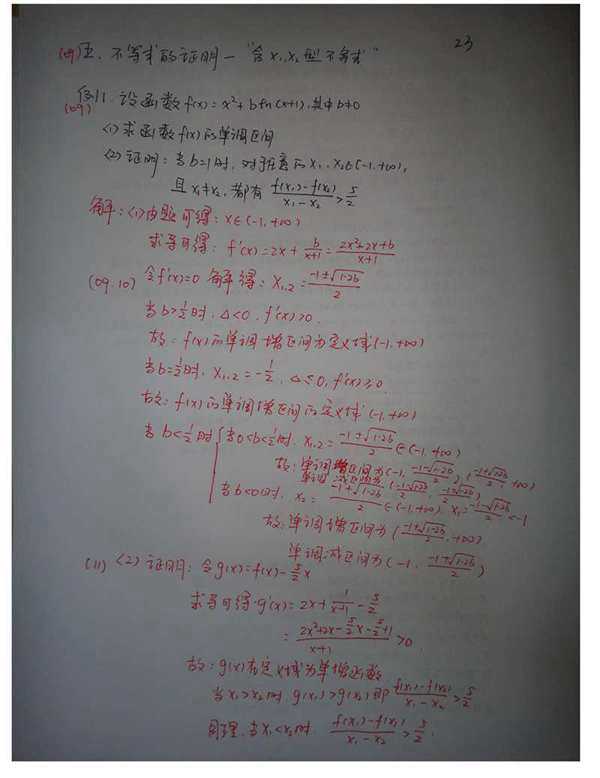 23
五、不等式的证明—“含x₁,x₂型不等式”
例11. 设函数f(x)=x²+bln(x+1),其中b≠0
(09)
<1>求函数f(x)的单调区间
<2>证明:当b=1时,对于任意的x₁,x₂∈(-1,+∞),
且x₁≠x₂,都有 (f(x₁)-f(x₂))/(x₁-x₂)>5/2
解:<1>由题可得:x∈(-1,+∞)
求导可得:f'(x)=2x+b/(x+1)=(2x²+2x+b)/(x+1)
(09.10) 令f'(x)=0 解得:x₁,₂=(-1±√(1-2b))/2
当b>1/2时,Δ<0,f'(x)>0.
故:f(x)的单调增区间为定义域(-1,+∞)
当b=1/2时,x₁,₂=-1/2,Δ≤0,f'(x)≥0.
故:f(x)的单调增区间为定义域(-1,+∞)
当b<1/2时{当0<b<1/2时,x₁,₂=(-1±√(1-2b))/2∈(-1,+∞)
故:单调增区间为(-1,(-1-√(1-2b))/2),((-1+√(1-2b))/2,+∞)
单调减区间为((-1-√(1-2b))/2,(-1+√(1-2b))/2)
当b<0时,x₂=(-1+√(1-2b))/2∈(-1,+∞),x₁=(-1-√(1-2b))/2<-1
故:单调增区间为((-1+√(1-2b))/2,+∞)
单调减区间为(-1,(-1+√(1-2b))/2)
(11) <2>证明:令g(x)=f(x)-5/2x
求导可得:g'(x)=2x+1/(x+1)-5/2
=(2x²+2x-5/2x-5/2+1)/(x+1)>0
故:g(x)在定义域为单增函数
当x₁>x₂时,g(x₁)>g(x₂)即(f(x₁)-f(x₂))/(x₁-x₂)>5/2
同理,当x₁<x₂时.(f(x₁)-f(x₂))/(x₁-x₂)>5/2.